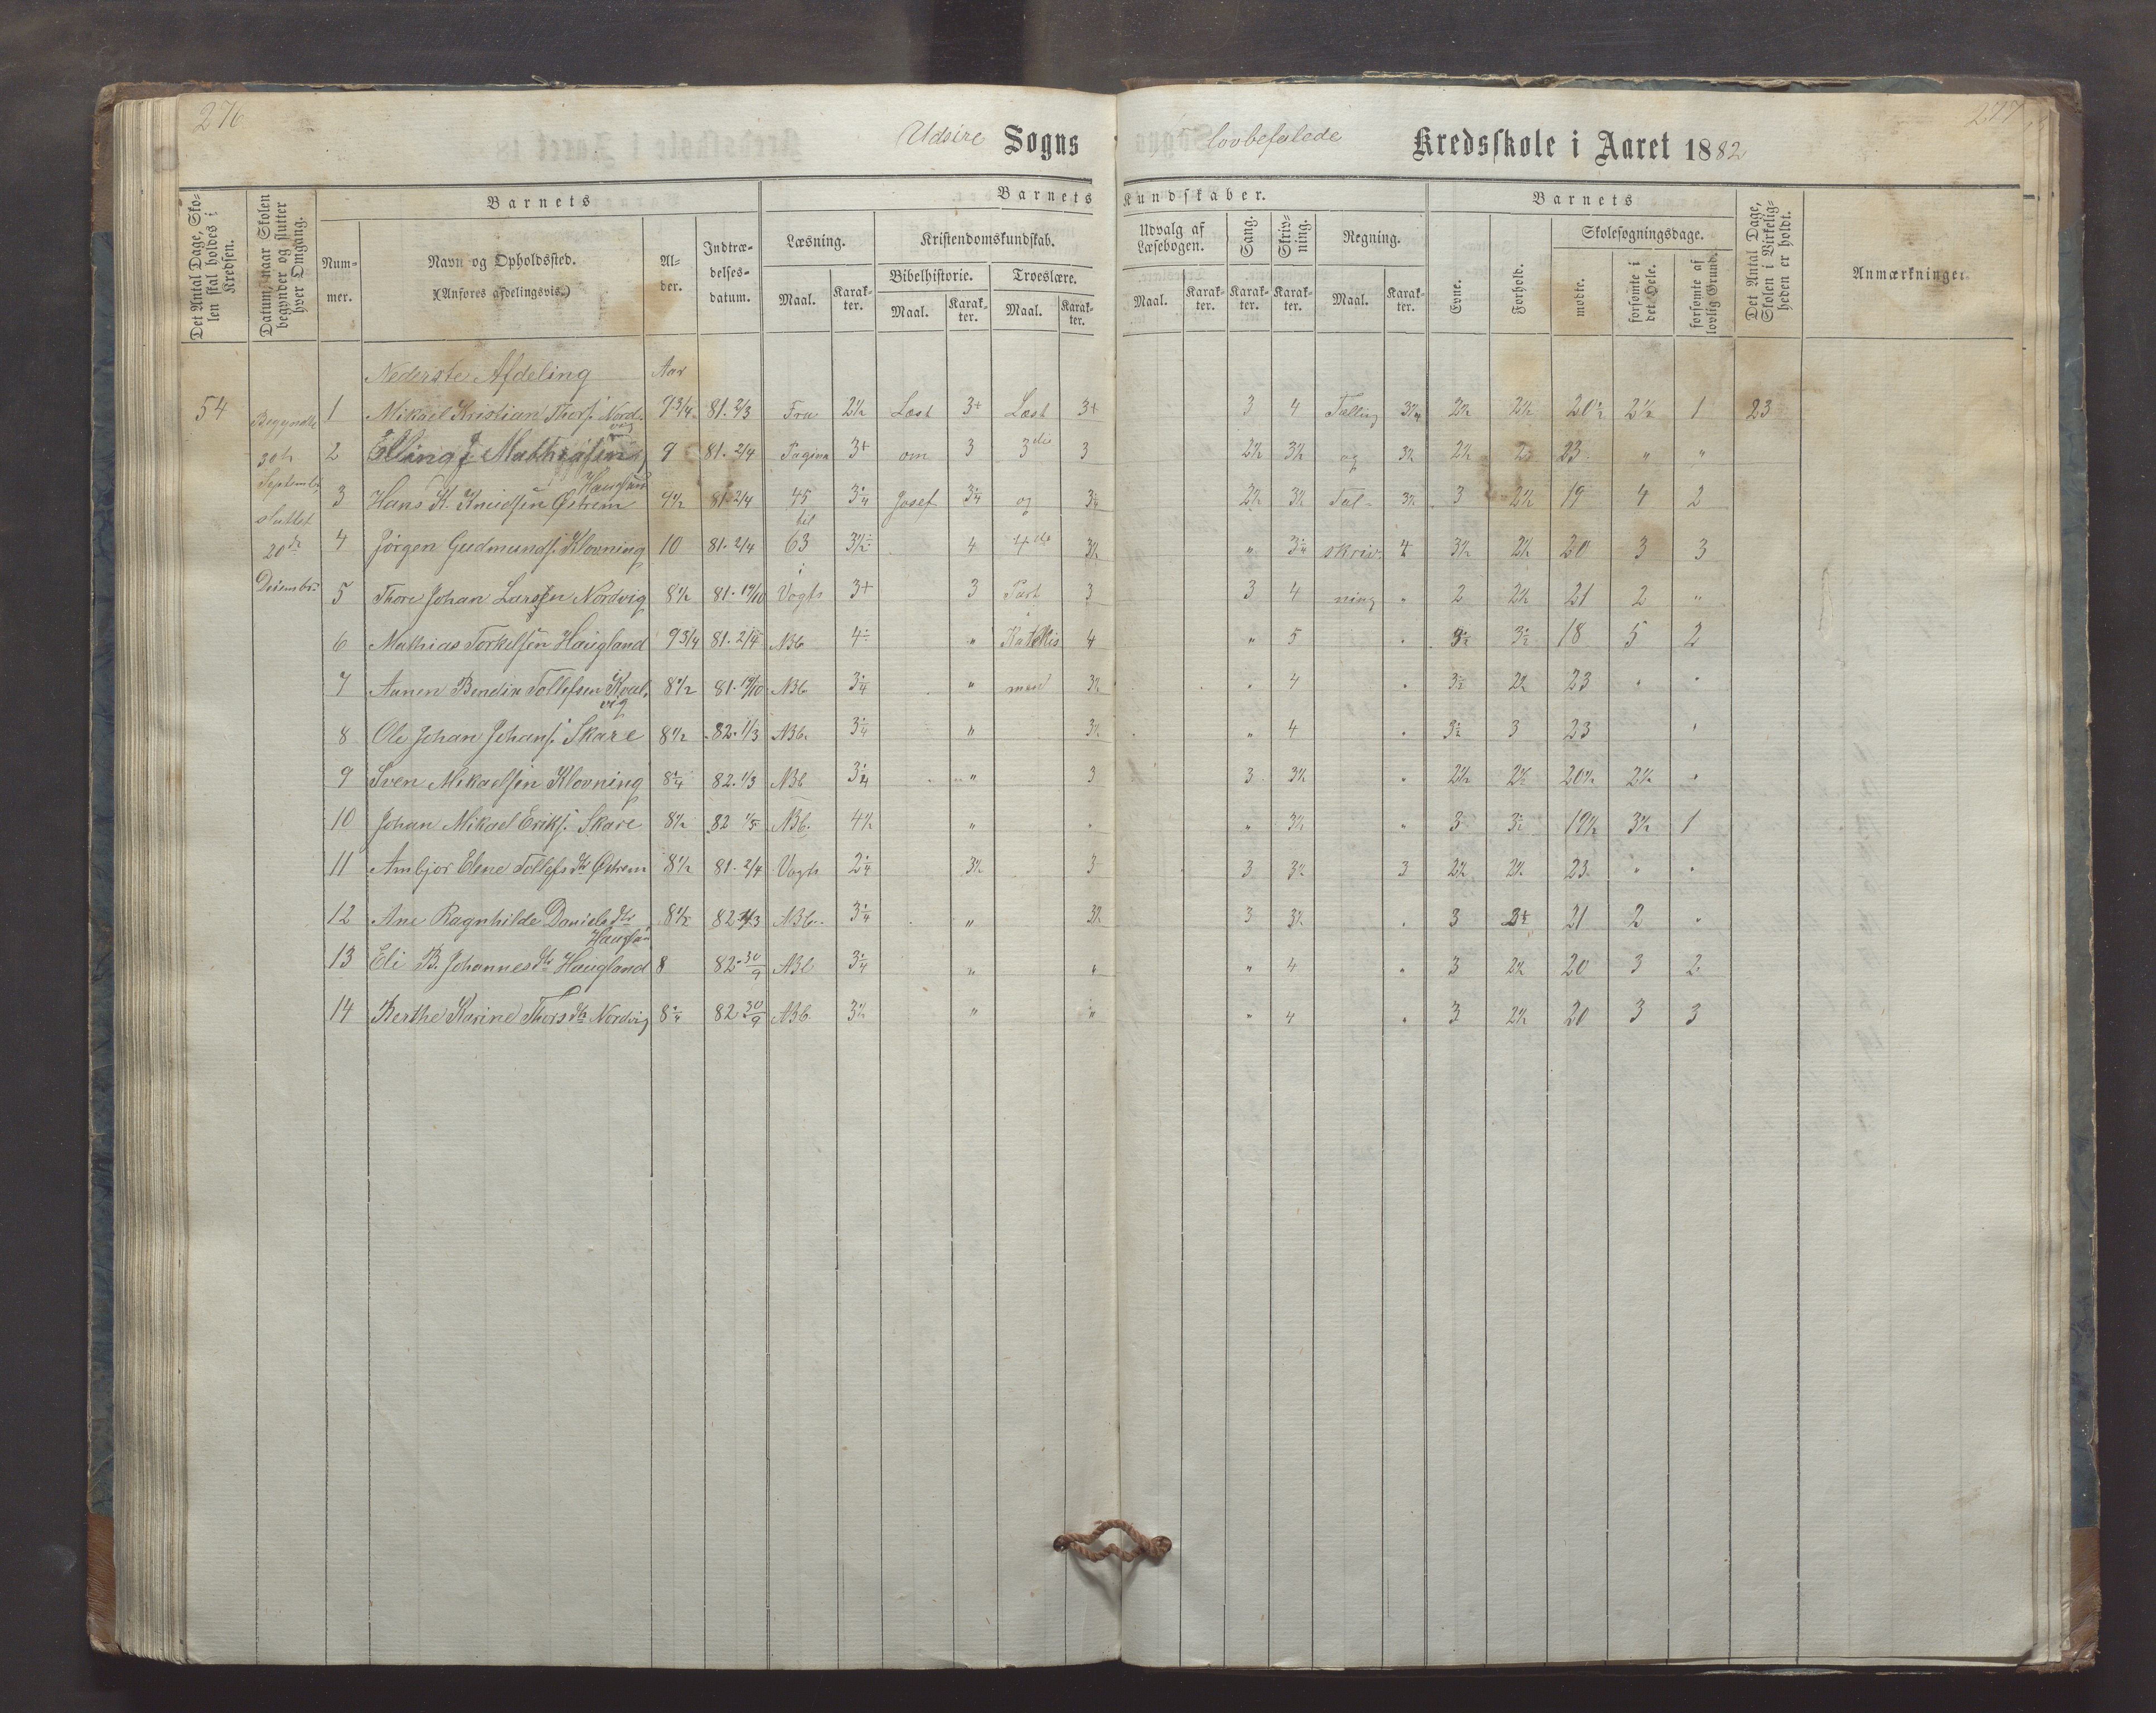 276
277
Udsire Sogns lovbefalede Kredsskole i Aaret 1882
Det Antal Dage, Skolen skal holdes i Kredsen.
Datum, naar Skolen begynder og slutter hver Omgang.
Barnets
Barnets Kundskaber.
Barnets
Det Antal Dage, Skolen i Virkeligheden er holdt.
Anmærkninger.
Nummer.
Navn og Opholdssted.
(Anføres afdelingsvis.)
Alder.
Indtrædelsesdatum.
Læsning.
Kristendomskundskab.
Udvalg af Læsebogen.
Sang.
Skrivning.
Regning.
Evne.
Forhold.
Skolesøgningsdage.
Bibelhistorie.
Troeslære.
mødte.
forsømte i det Hele.
forsømte af lovlig Grund.
Maal. Karakter. Maal. Karakter. Maal. Karakter. Maal. Karakter. Karakter. Karakter. Maal. Karakter.
Nederste Afdeling Aar
54 Begyndte 1 Mikael Kristian Thors. Nordvig 9 3/4 81. 2/3 Fra 2½ Læst 3+ Læst 3+ 3 4 Tælling 2½ 2½ 20½ 2½ 1 23
30te 2 Elling J Mathiasen Haugland 9 81. 2/4 Pagina 3+ om 3 3die 3 2½ 3½ og 3½ 2½ 23 " "
September 3 Hans K. Knudsen Østrem 9½ 81 2/4 45 Josef og 2½ 3½ Tal- 3½ 3 2½ 19 4 2
sluttet til
20de 4 Jørgen Gudmunds. Klovning 10 81. 2/4 63 4 4de 3½ " skriv- 4 3½ 2½ 20 3 3
Desember 5 Thore Johan Larsen Nordvig 8½ 81. 19/10 Vogts 3+ 3 Part 3 3 4 ning " 2 2½ 21 2 "
6 Mathias Torkelsen Haugland 9 3/4 81. 2/4 ABC 4÷ " Katekis 4 " 5 18 5 2
7 Aanen Bendix Tollefsen Kvalvig 8½ 81. 19/10 ABC " 3½ " 4 " 2½ 23 " "
8 Ole Johan Johans. Skare 8½ 82. 1/3 ABC " 3½ " 4 " 3 23 "
9 Sven Mikaelsen Klovning 82. 1/3 ABC " 3 3 3½ " 2½ 2½ 20½ 2½ "
10 Johan Mikael Eriks. Skare 8½ 82 ABC. 4½ " " " 3½ " 3 19½ 3½ 1
11 Ambjør Elene Tollefsdtr Østrem 8½ 81. 2/4 Vogts 3½ 3 3 3½ 3 2½ 2½ 23 " "
12 Ane Ragnhilde Danielsdtr Haugland 8½ 82 ABC. " 3½ 3 3½ " 3 21 2 "
13 Eli B. Johannesdtr Haugland 8 82. 30/9 ABC " " " 4 " 3 2½ 20 3 2
14 Berthe Karine Thorsdtr Nordvig 82 30/9 ABC " " " 4 " 3 2½ 20 3 3